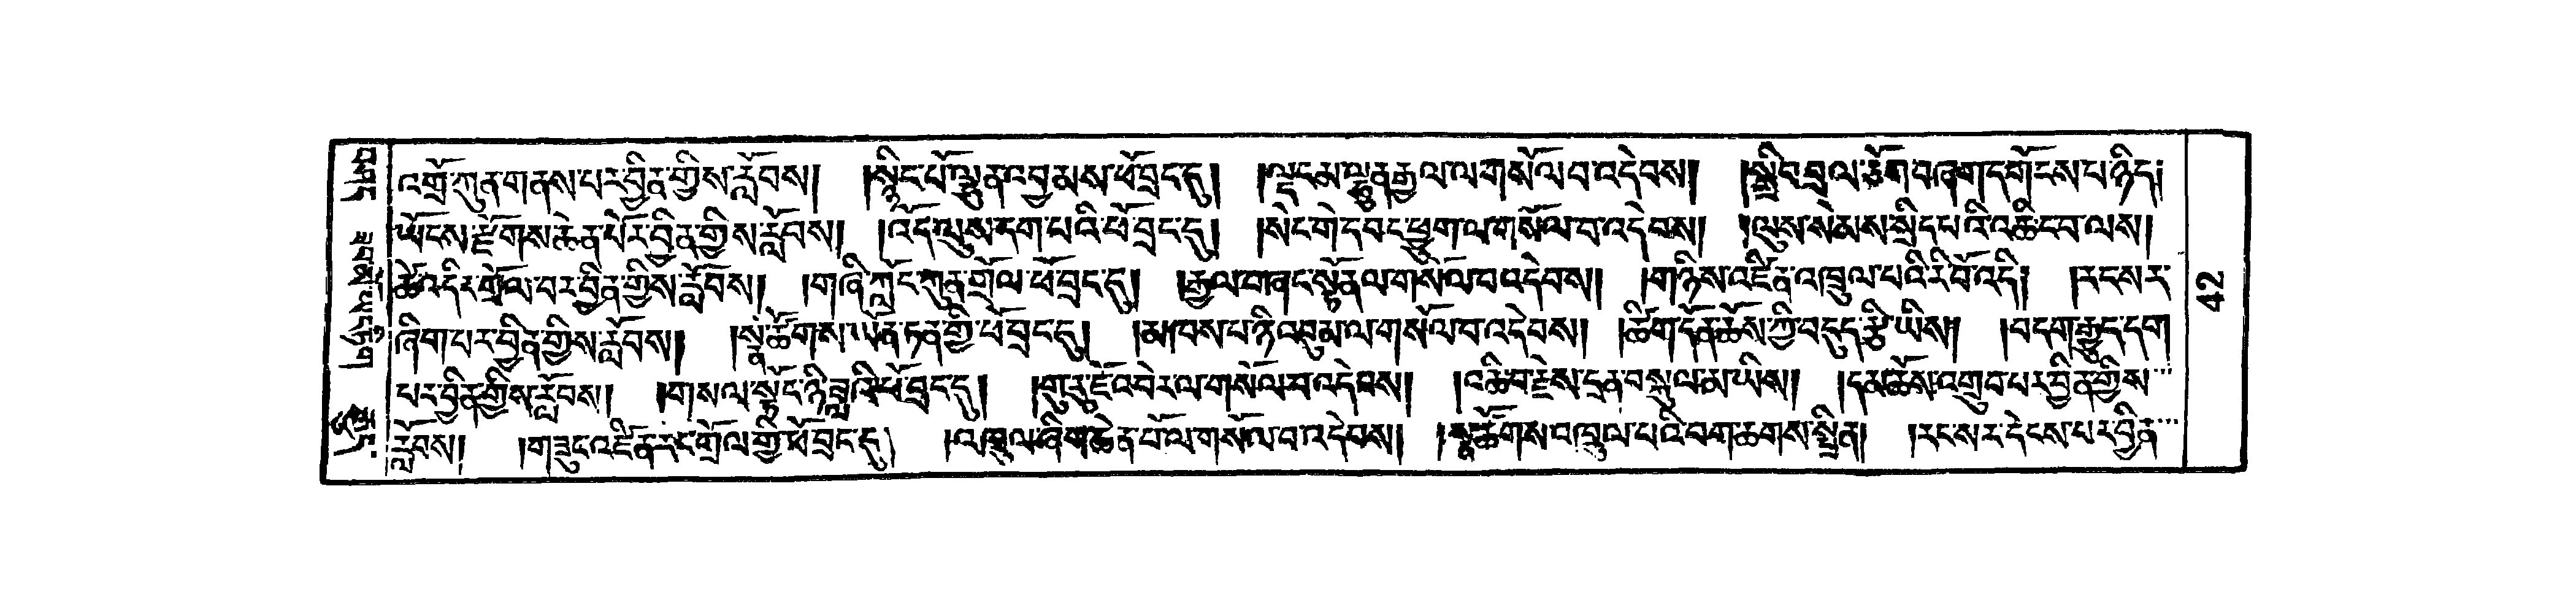 འགྲོ་ཀུན་གནས་པར་བྱིན་གྱིས་རློབས། །སྙིང་པོ་ལྷུན་འབྱམས་ཕོ་བྲང་དུ། །ལྡང་མ་ལྷུན་རྒྱལ་ལ་གསོལ་བ་འདེབས། །སྤྲོས་བྲལ་ཅོག་བཞག་དགོངས་པ་ཉིད།
ཡོངས་རྫོགས་ཆེན་པོར་བྱིན་གྱིས་རློབས། །འོད་ལུས་དག་པའི་ཕོ་བྲང་དུ། །སེང་གེ་དབང་ཕྱུག་ལ་གསོལ་བ་འདེབས། །ལུས་སེམས་སྲིད་པའི་འཆིང་བ་ལས།
ཚེ་འདིར་གྲོལ་བར་བྱིན་གྱིས་རློབས། །གཞི་ཀློང་ཀུན་གྲོལ་ཕོ་བྲང་དུ། །རྒྱལ་བ་ཞང་སྟོན་ལ་གསོལ་བ་འདེབས། །གཉིས་འཛིན་འཁྲུལ་པའི་རི་བོ་འདི། །རང་སར་
ཞིག་པར་བྱིན་གྱིས་རློབས། །སྣ་ཚོགས་ཡོན་ཏན་གྱི་ཕོ་བྲང་དུ། །མཁས་པ་ཉི་འབུམ་ལ་གསོལ་བ་འདེབས། །ཚིག་དོན་ཆོས་ཀྱི་བདུད་རྩི་ཡིས། །བདག་རྒྱུད་དག
པར་བྱིན་གྱིས་རློབས། །གསལ་སྟོང་ཉི་ཟླའི་ཕོ་བྲང་དུ། །གུ་རུ་ཇོ་འབེར་ལ་གསོལ་བ་འདེབས། །འཆི་བ་རྗེས་དྲན་བསྐུལ་མ་ཡིས། །དམ་ཆོས་འགྲུབ་པར་བྱིན་གྱིས
རློབས། །གཟུང་འཛིན་རང་གྲོལ་གྱི་ཕོ་བྲང་དུ། །འཁྲུལ་ཞིག་ཆེན་པོ་ལ་གསོལ་བ་འདེབས། །སྣ་ཚོགས་འཁྲུལ་པའི་བག་ཆགས་སྤྲིན། །རང་སར་དེངས་པར་བྱིན